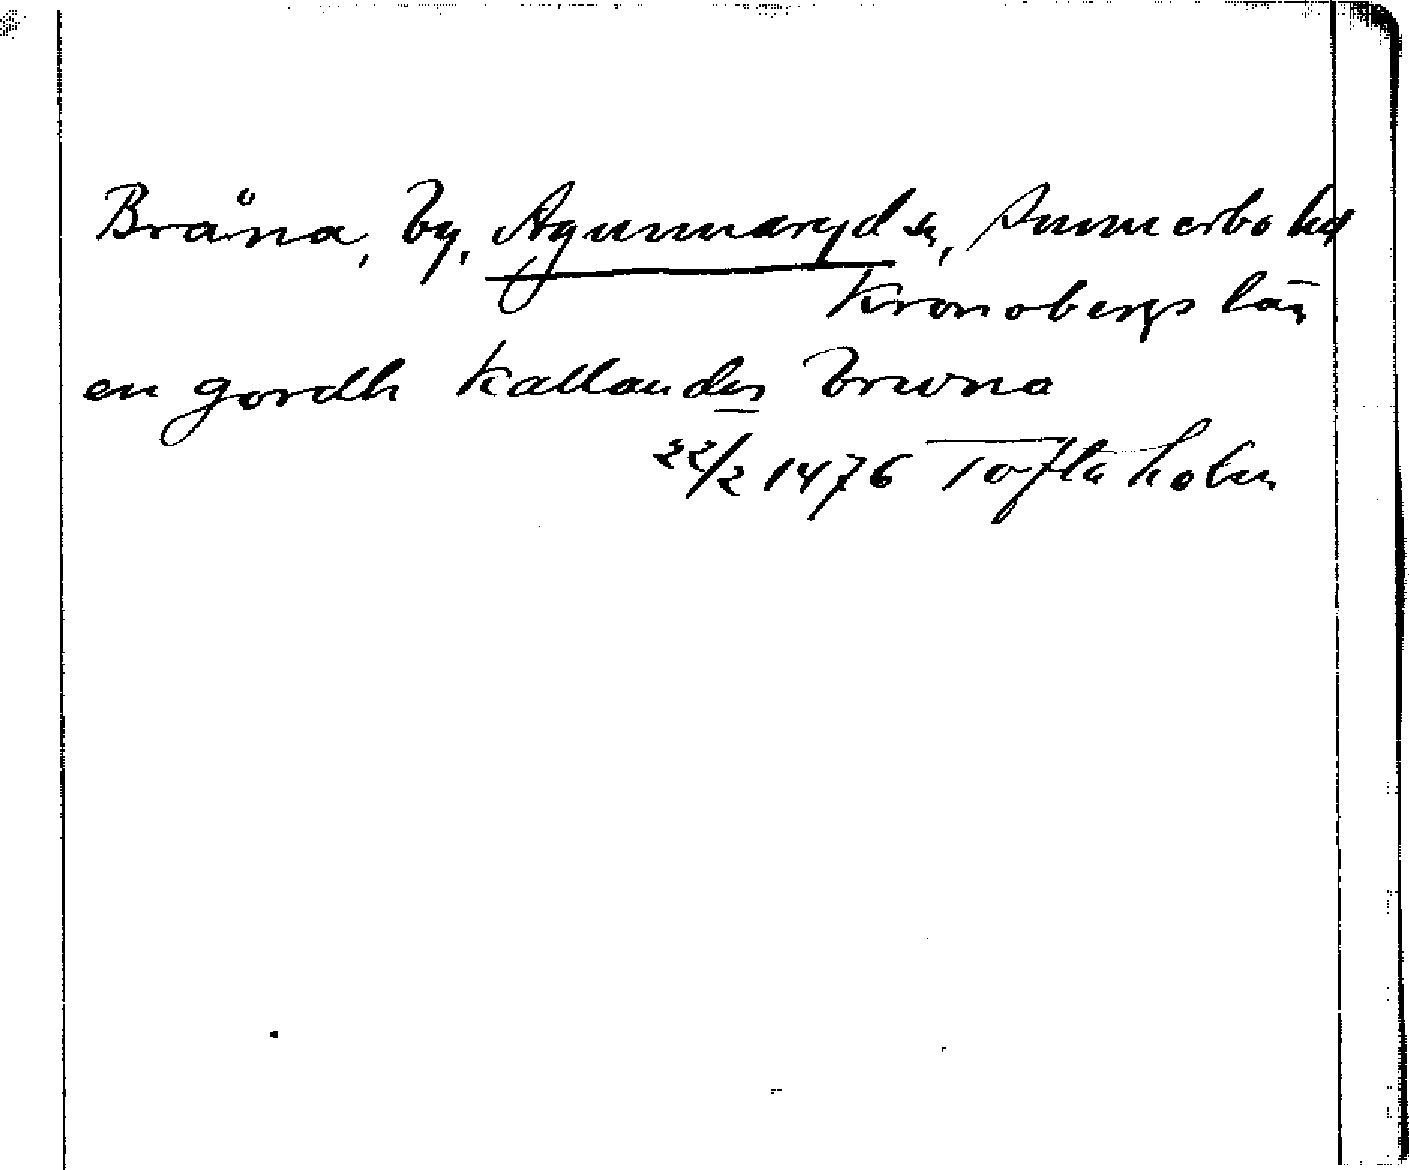 Bråna, by, Agunnaryds sn, Sunnerbo hd
Kronobergs län
en gordh kallandes brwna
22/2 1476 Toftaholm